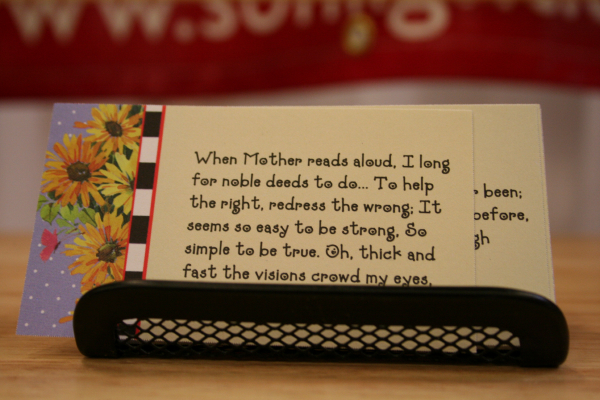 When Mother reads aloud, I long
for noble deeds to do... To help
the right, redress the wrong; It
seems so easy to be strong, So
simple to be true. Oh, thick and
fast the visions crowd my eyes,
been;
before,